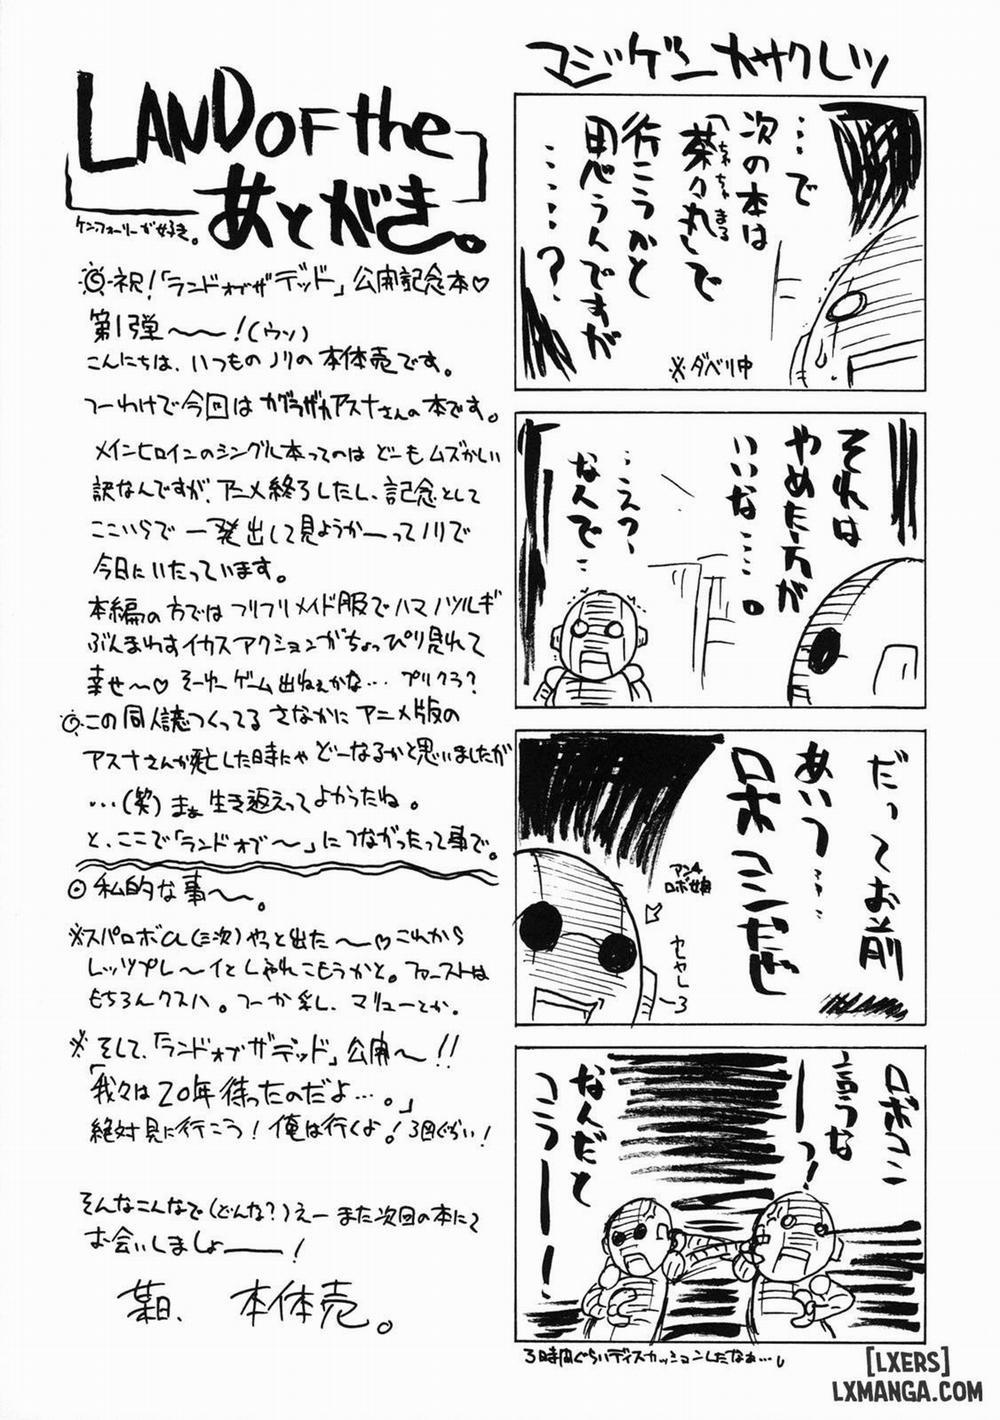 LAND OF the
あとがき。
ケン・フォーリーが好き。
◎祝!「ランドオブザデッド」公開記念本♡
第1弾〜〜!(ウソ)
こんにちは、いつものノリの本体売です。
つーわけで今回はカグラザカアスナさんの本です。
メインヒロインのシングル本ってのはどーもムズかしい
訳なんですが、アニメ終了したし、記念として
ここいらで一発出して見ようかーってノリで
今日にいたっています。
本編の方ではフリフリメイド服でハマノツルギ
ぶんまわすイカスアクションがちょっぴり見れて
幸せ〜♡ そーゆーゲーム出ねぇかな… プリクラ?
◎この同人誌つくってるさなかにアニメ版の
アスナさんが死亡した時にゃどーなるかと思いましたが
…(笑)まぁ生き返えってよかったね。
と、ここで「ランドオブ〜」につながったって事で。
◎私的な事〜。
※スパロボα(三次)やっと出た〜♡これから
レッツプレ〜イとしゃれこもうかと。ファーストは
もちろんクスハ。つーか乳し、マリューとか。
※そして、「ランドオブザデッド」公開〜!!
「我々は20年待ったのだよ…。」
絶対見に行こう!俺は行くよ!3回ぐらい!
そんなこんなで(どんな?)えーまた次回の本にて
お会いしましょーー!
某日、 本体売。
マジゲンカサクレツ
…で
次の本は
「茶々丸」で
ちゃちゃまる
行こうかと
思うんですが
……?
※ダベリ中
それは
やめた方が
いいな…。
…えっ、
なんで…
だってお前
あいつ…
ロボコンだぜ
アンチ
ロボ娘
ロボコン
言うな
ーーっ!
なんだと
コラーー!
3時間ぐらいディスカッションしたなぁ…。
[LXERS]
LXMANGA.COM